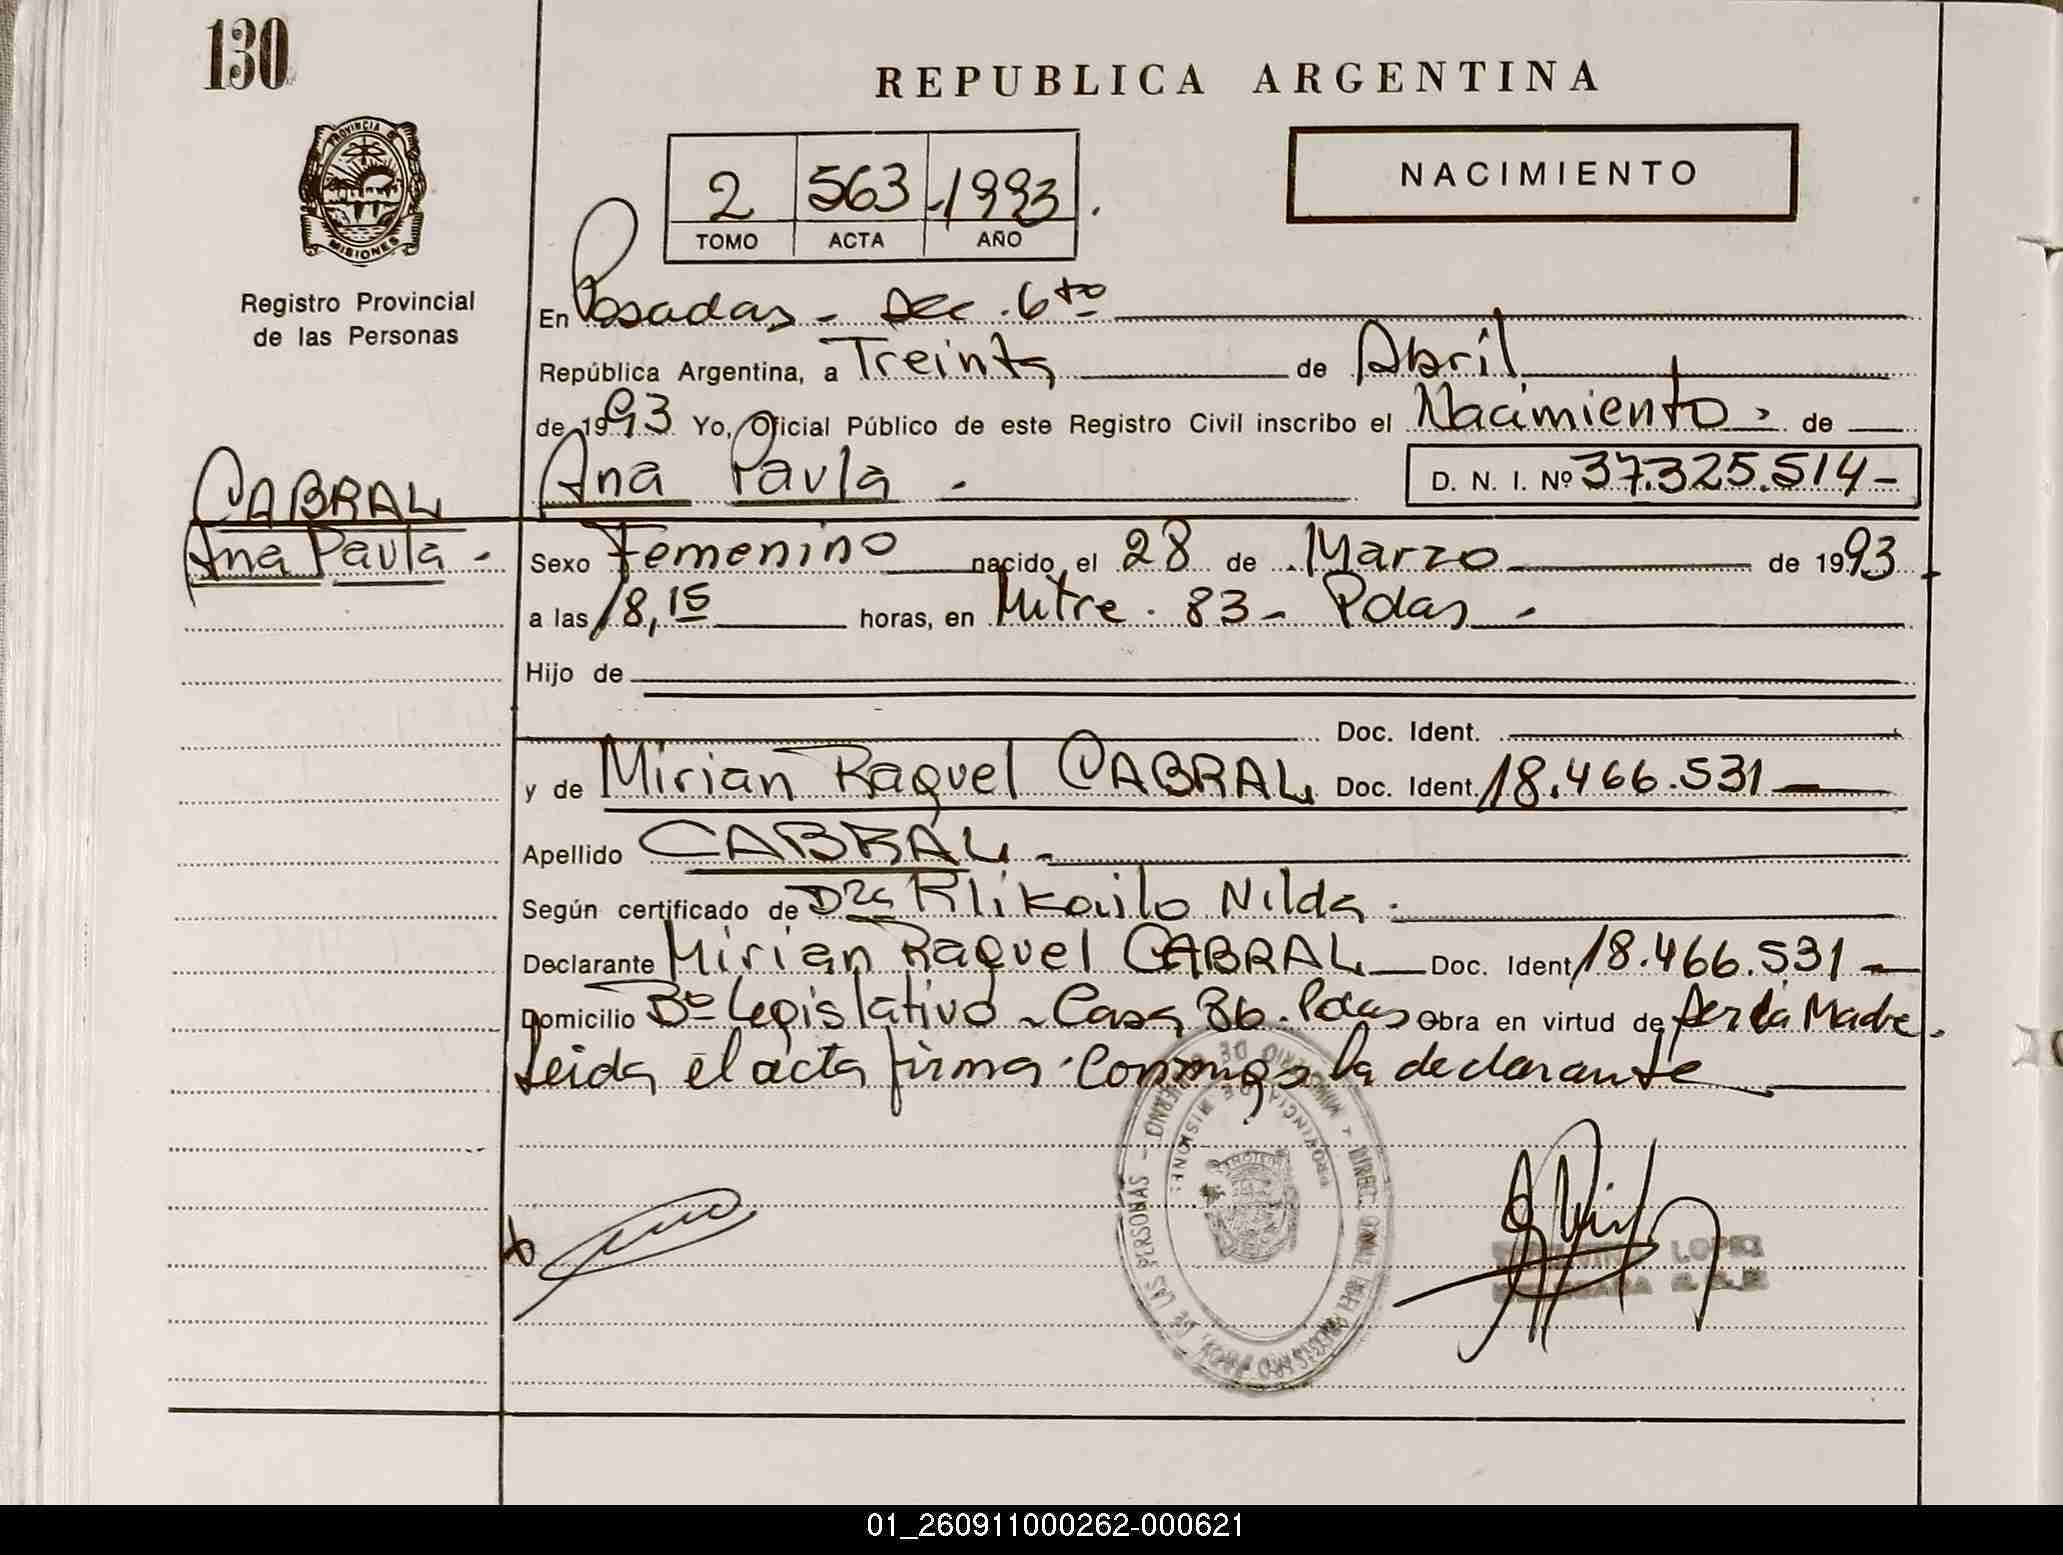 130
REPUBLICA ARGENTINA
PROVINCIA DE
MISIONES
Registro Provincial
de las Personas
2 563 1993
TOMO ACTA AÑO
NACIMIENTO
En Posadas - Sec. 6to
República Argentina, a Treinta de Abril
de 1993 Yo, Oficial Público de este Registro Civil inscribo el Nacimiento - de
Ana Paula - D. N. I. Nº 37.325.514-
CABRAL
Ana Paula -
Sexo Femenino nacido el 28 de Marzo de 1993
a las 18,15 horas, en Mitre - 83 - Pdas -
Hijo de
Doc. Ident.
y de Mirian Raquel CABRAL Doc. Ident. 18.466.531-
Apellido CABRAL -
Según certificado de Dra Nilda -
Declarante Mirian Raquel CABRAL Doc. Ident 18.466.531-
Domicilio Bº Legislativo - Casa 86 - Pdas Obra en virtud de ser la Madre.
Leida el acta firma conmigo la declarante
LOPEZ
01_260911000262-000621